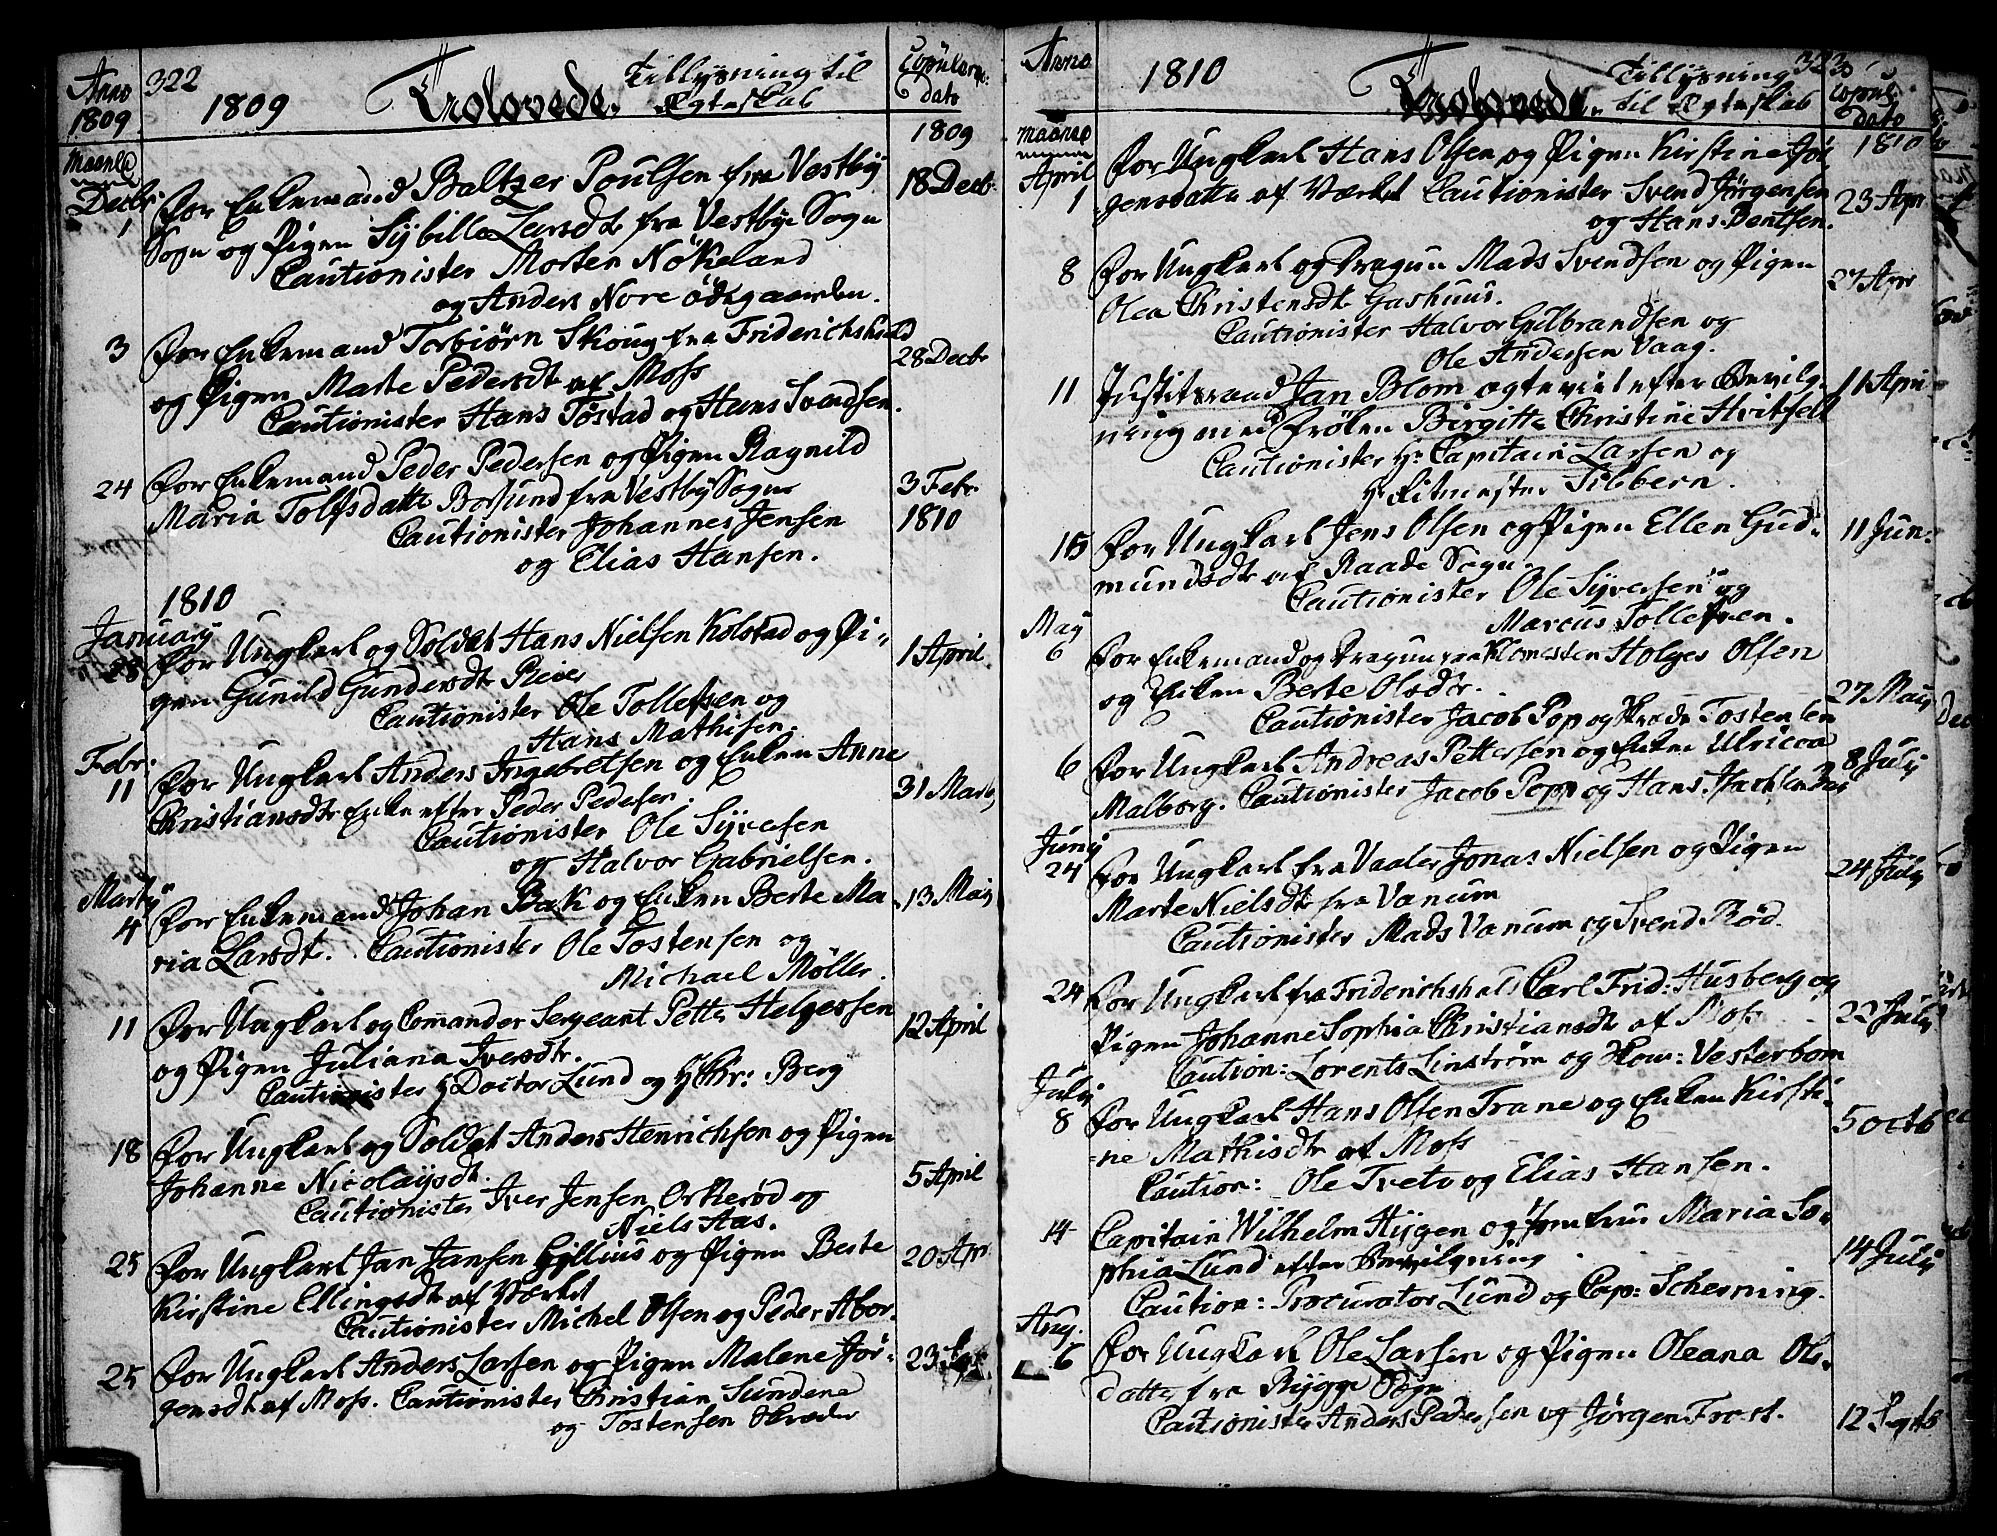 Anno
1809
322
1809
Trolovede.
Tillysning til
Ægteskab
Copulerings:
dato
1809
Maaned
Decbr
1
For Enkemand Baltzer Poulsen fra Vestbÿ
Sogn og Pigen Sÿbille Larsdt fra Vestbÿe Sogn
Cautionister Morten Nökeland
og Anders Nore ödegaarden.
18 Decb.
3
For Enkemand Torbiørn Skoug fra Friderichshald
og Pigen Marte Pedersdt af Moss
Cautionister Hans Töstad og Hans Svendsen.
28 Decbr
24
For Enkemand Peder Pedersen og Pigen Ragnild
Maria Tolfsdatte Borsund fra Vestbÿ Sogn
Cautionister Johannes Jensen
og Elias Hansen.
3 Febr.
1810
1810
Januarÿ
28
For Ungkarl og Soldat Hans Nielsen Kolstad og Pi-
gen Gunild Gundersdt Rieer
Cautionister Ole Tollefsen og
Hans Mathisen.
1 April.
Febr:
11
For Ungkarl Anders Ingebretsen og Enken Anne
Christiansdtr Enke efter Peder Pedesen.
Cautionister Ole Sÿvesen
og Halvor Gabrielsen.
31 Marts
Martÿ
4
For Enkemand Johan Bak og Enken Berte Ma-
ria Larsdt. Cautionister Ole Tostensen og
Michael Møller.
13 Maÿ
11
For Ungkarl og Commander Sergeant Petter Helgessen
og Pigen Juliana Iversdtr.
Cautionister Hr Doctor Lund og Hr Chr: Berg
12 April
18
For Ungkarl og Soldat Anders Henrichsen og Pigen
Johanne Nicolaÿsdt.
Cautionister Iver Jensen Orkerød og
Niels Aas.
5 April
25
For Ungkarl Jan Jansen Gÿllius og Pigen Berte
Kirstine Ellingsdt af Værket
Cautionister Michel Olsen og Peder Abor.
20 Apr.
25
For Ungkarl Anders Larsen og Pigen Malene Jör-
gensdt af Moss. Cautionister Christian Sundene
og Tostensen Skræder
23
Anno
1810
Trolovede.
Tillysning
til Ægteskab
323
Copul.
dato
1810
maaned
April
1
For Ungkarl Hans Olsen og Pigen Kirstine Jör
gensdatter af Værket Cautionister Svend Jörgensen
og Hans Bentsen.
23 Apr
8
For Ungkarl og Dragun Mads Svendsen og Pigen
Olea Christensdt Gashuus.
Cautionister Halvor Gulbrandsen og
Ole Andersen Vaag.
27 Apr
11
Justitsraad Jan Blom ægteviet efter Bevilg-
ning med Frøken Birgitte Christine Hvitfelt
Cautionister Hr Capitain Larsen og
Hr Ritmester Sibbern.
11 Apr
15
For Ungkarl Jens Olsen og Pigen Ellen Gud-
mundsdt af Raade Sogn.
Cautionister Ole Sÿversen og
Marcus Tollefsen.
11 Jun.
Maÿ
6
For Enkemand og Dragun fra Klomesten Holges Olsen
og Enken Berte Olsdtr.
Cautionister Jacob Pop og Tostensen
27 Maÿ
6
For Ungkarl Andreas Pettersen og Enken Ulricca
Malborg. Cautionister Jacob Popp og Hans
8 Julÿ
Junÿ
24
For Ungkarl fra Vaaler Jonas Nielsen og Pigen
Marte Nielsdt fra Vanum
Cautionister Mads Vanum og Svend Röd.
24 Julÿ
24
For Ungkarl fra Friderichshald Carl Frid: Husberg og
Pigen Johanne Sophia Christiansdt af Moss
Caution: Lorents Linström og Vesterbom
22 Julÿ
Julÿ
8
For Ungkarl Hans Olsen Trane og Enken Kirsti-
-ne Mathisdt af Moss
Caution: Ole Tveto og Elias Hansen.
5 octb
14
Capitain Wilhelm Hÿgen og Jomfrue Maria So-
phia Lund efter Bevilgning
Caution: Procurator Lund og Cap: Scherning.
14 Julÿ
Aug.
6
For Ungkarl Ole Larsen og Pigen Oleana Ols-
datte fra Rÿgge Sogn
Cautionister Anders Pedersen og Jörgen Frost.
12 Septb